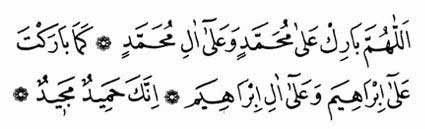 اَللّٰهُمَّ بَارِكْ عَلٰى مُحَمَّدٍ وَعَلٰٓى اٰلِ مُحَمَّدٍ ۞ كَمَا بَارَكْتَ
عَلٰٓى اِبْرَاهِيْمَ وَعَلٰٓى اٰلِ اِبْرَاهِيْمَ ۞ اِنَّكَ حَمِيْدٌ مَّجِيْدٌ ۞